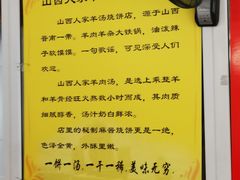 山西人家羊汤烧饼店，源于山西
晋南一带。羊肉羊杂大铁锅，油泼辣
子软馍馍。一句歌谣，可见深受人们
欢迎。
山西人家羊肉汤，是选上系整羊
和羊骨经旺火熬数小时而成，其肉质
细腻醇香，汤汁奶白鲜浓。
店里的秘制麻酱烧饼更是一绝，
色泽金黄，外酥里嫩。
一饼一汤，一干一稀，美味无穷。